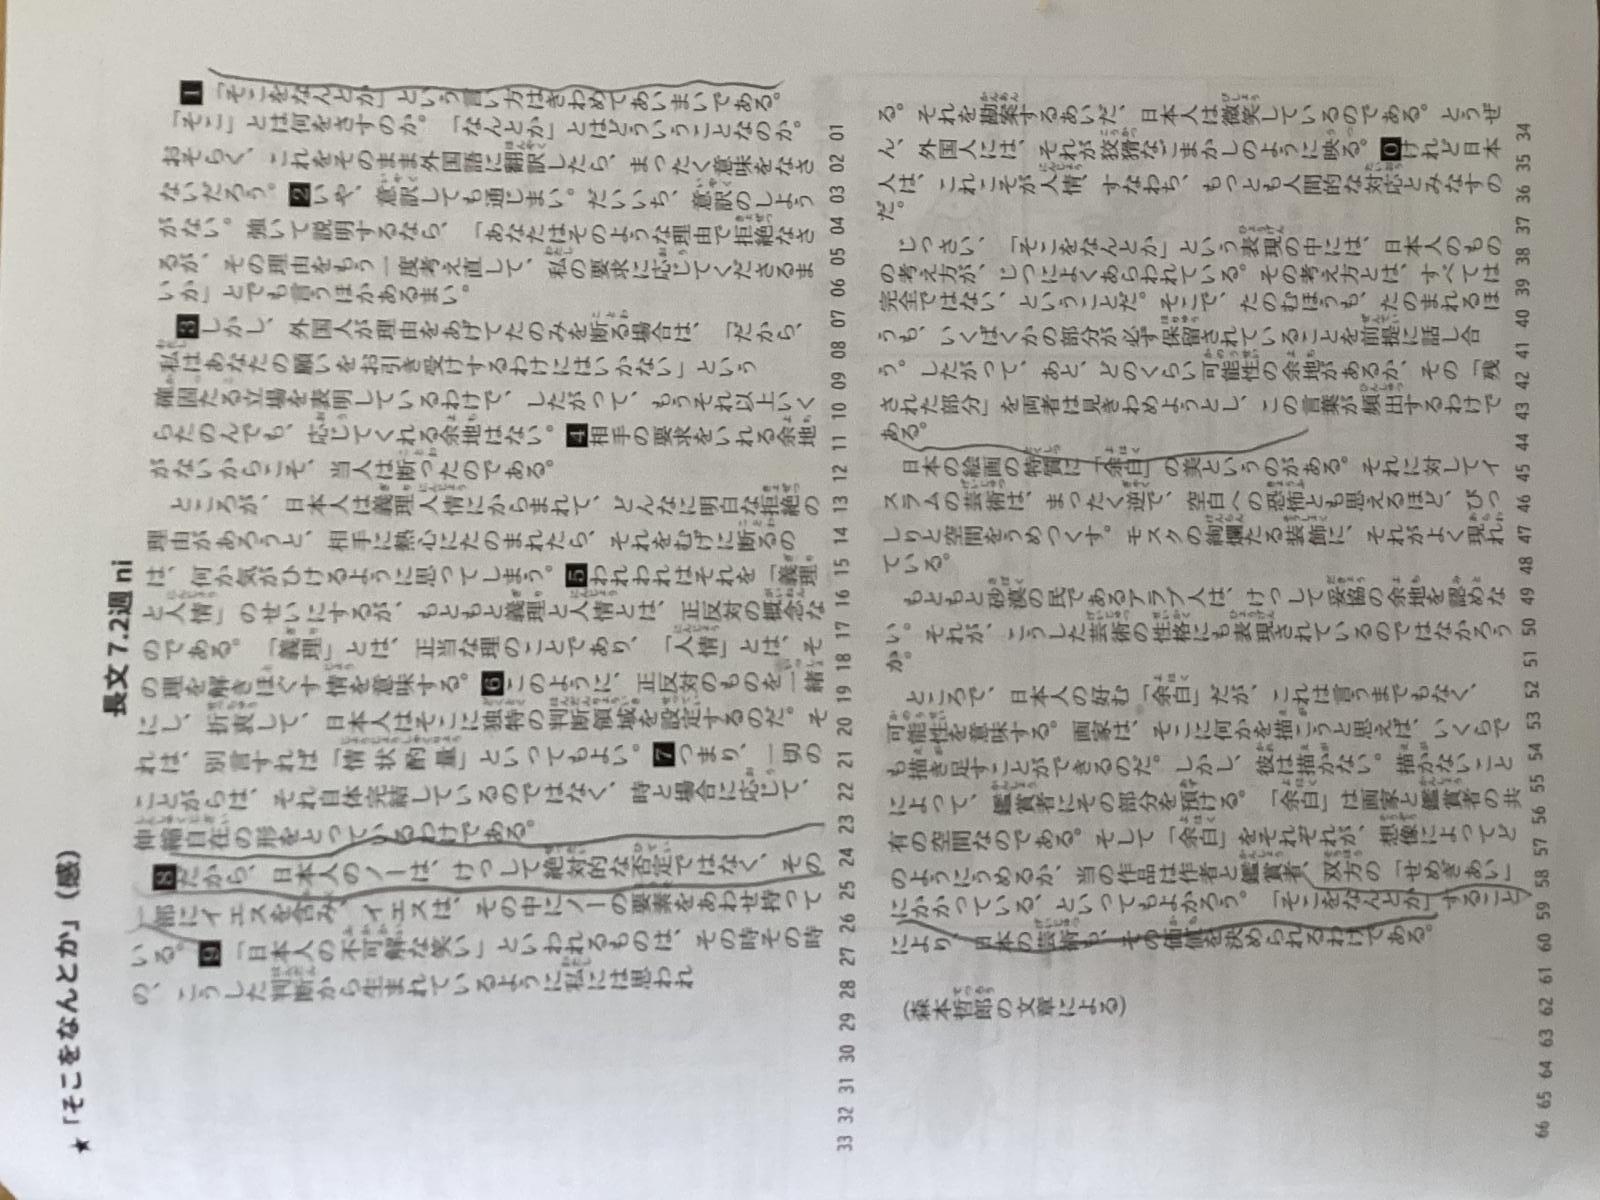 ★「そこをなんとか」(感)
長文 7.2週 ni
1「そこをなんとか」という言い方はきわめてあいまいである。
「そこ」とは何をさすのか。「なんとか」とはどういうことなのか。
おそらく、これをそのまま外国語に翻訳したら、まったく意味をなさ
ないだろう。2いや、意訳しても通じまい。だいいち、意訳のしよう
がない。強いて説明するなら、「あなたはそのような理由で拒絶なさ
るが、その理由をもう一度考え直して、私の要求に応じてくださるま
いか」とでも言うほかあるまい。
3しかし、外国人が理由をあげてたのみを断る場合は、「だから、
私はあなたの願いをお引き受けするわけにはいかない」という
確固たる立場を表明しているわけで、したがって、もうそれ以上いく
らたのんでも、応じてくれる余地はない。4相手の要求をいれる余地
がないからこそ、当人は断ったのである。
ところが、日本人は義理人情にからまれて、どんなに明白な拒絶の
理由があろうと、相手に熱心にたのまれたら、それをむげに断るの
は、何か気がひけるように思ってしまう。5われわれはそれを「義理
と人情」のせいにするが、もともと義理と人情とは、正反対の概念な
のである。「義理」とは、正当な理のことであり、「人情」とは、そ
の理を解きほぐす情を意味する。6このように、正反対のものを一緒
にし、折衷して、日本人はそこに独特の判断領域を設定するのだ。そ
れは、別言すれば「情状酌量」といってもよい。7つまり、一切の
ことがらは、それ自体完結しているのではなく、時と場合に応じて、
伸縮自在の形をとっているわけである。
8だから、日本人のノーは、けっして絶対的な否定ではなく、その
一部にイエスを含み、イエスは、その中にノーの要素をあわせ持って
いる。9「日本人の不可解な笑い」といわれるものは、その時その時
の、こうした判断から生まれているように私には思われ
01
02
03
04
05
06
07
08
09
10
11
12
13
14
15
16
17
18
19
20
21
22
23
24
25
26
27
28
29
30
31
32
33
る。それを勘案するあいだ、日本人は微笑しているのである。とうぜ
ん、外国人には、それが狡猾なごまかしのように映る。0けれど日本
人は、これこそが人情、すなわち、もっとも人間的な対応とみなすの
だ。
じっさい、「そこをなんとか」という表現の中には、日本人のもの
の考え方が、じつによくあらわれている。その考え方とは、すべては
完全ではない、ということだ。そこで、たのむほうも、たのまれるほ
うも、いくばくかの部分が必ず保留されていることを前提に話し合
う。したがって、あと、どのくらい可能性の余地があるか、その「残
された部分」を両者は見きわめようとし、この言葉が頻出するわけで
ある。
日本の絵画の特質に「余白」の美というのがある。それに対してイ
スラムの芸術は、まったく逆で、空白への恐怖とも思えるほど、びっ
しりと空間をうめつくす。モスクの絢爛たる装飾に、それがよく現れ
ている。
もともと砂漠の民であるアラブ人は、けっして妥協の余地を認めな
い。それが、こうした芸術の性格にも表現されているのではなかろう
か。
ところで、日本人の好む「余白」だが、これは言うまでもなく、
可能性を意味する。画家は、そこに何かを描こうと思えば、いくらで
も描き足すことができるのだ。しかし、彼は描かない。描かないこと
によって、鑑賞者にその部分を預ける。「余白」は画家と鑑賞者の共
有の空間なのである。そして「余白」をそれぞれが、想像によってど
のようにうめるか、当の作品は作者と鑑賞者、双方の「せめぎあい」
にかかっている、といってもよかろう。「そこをなんとか」すること
により、日本の芸術も、その価値を決められるわけである。
(森本哲郎の文章による)
34
35
36
37
38
39
40
41
42
43
44
45
46
47
48
49
50
51
52
53
54
55
56
57
58
59
60
61
62
63
64
65
66